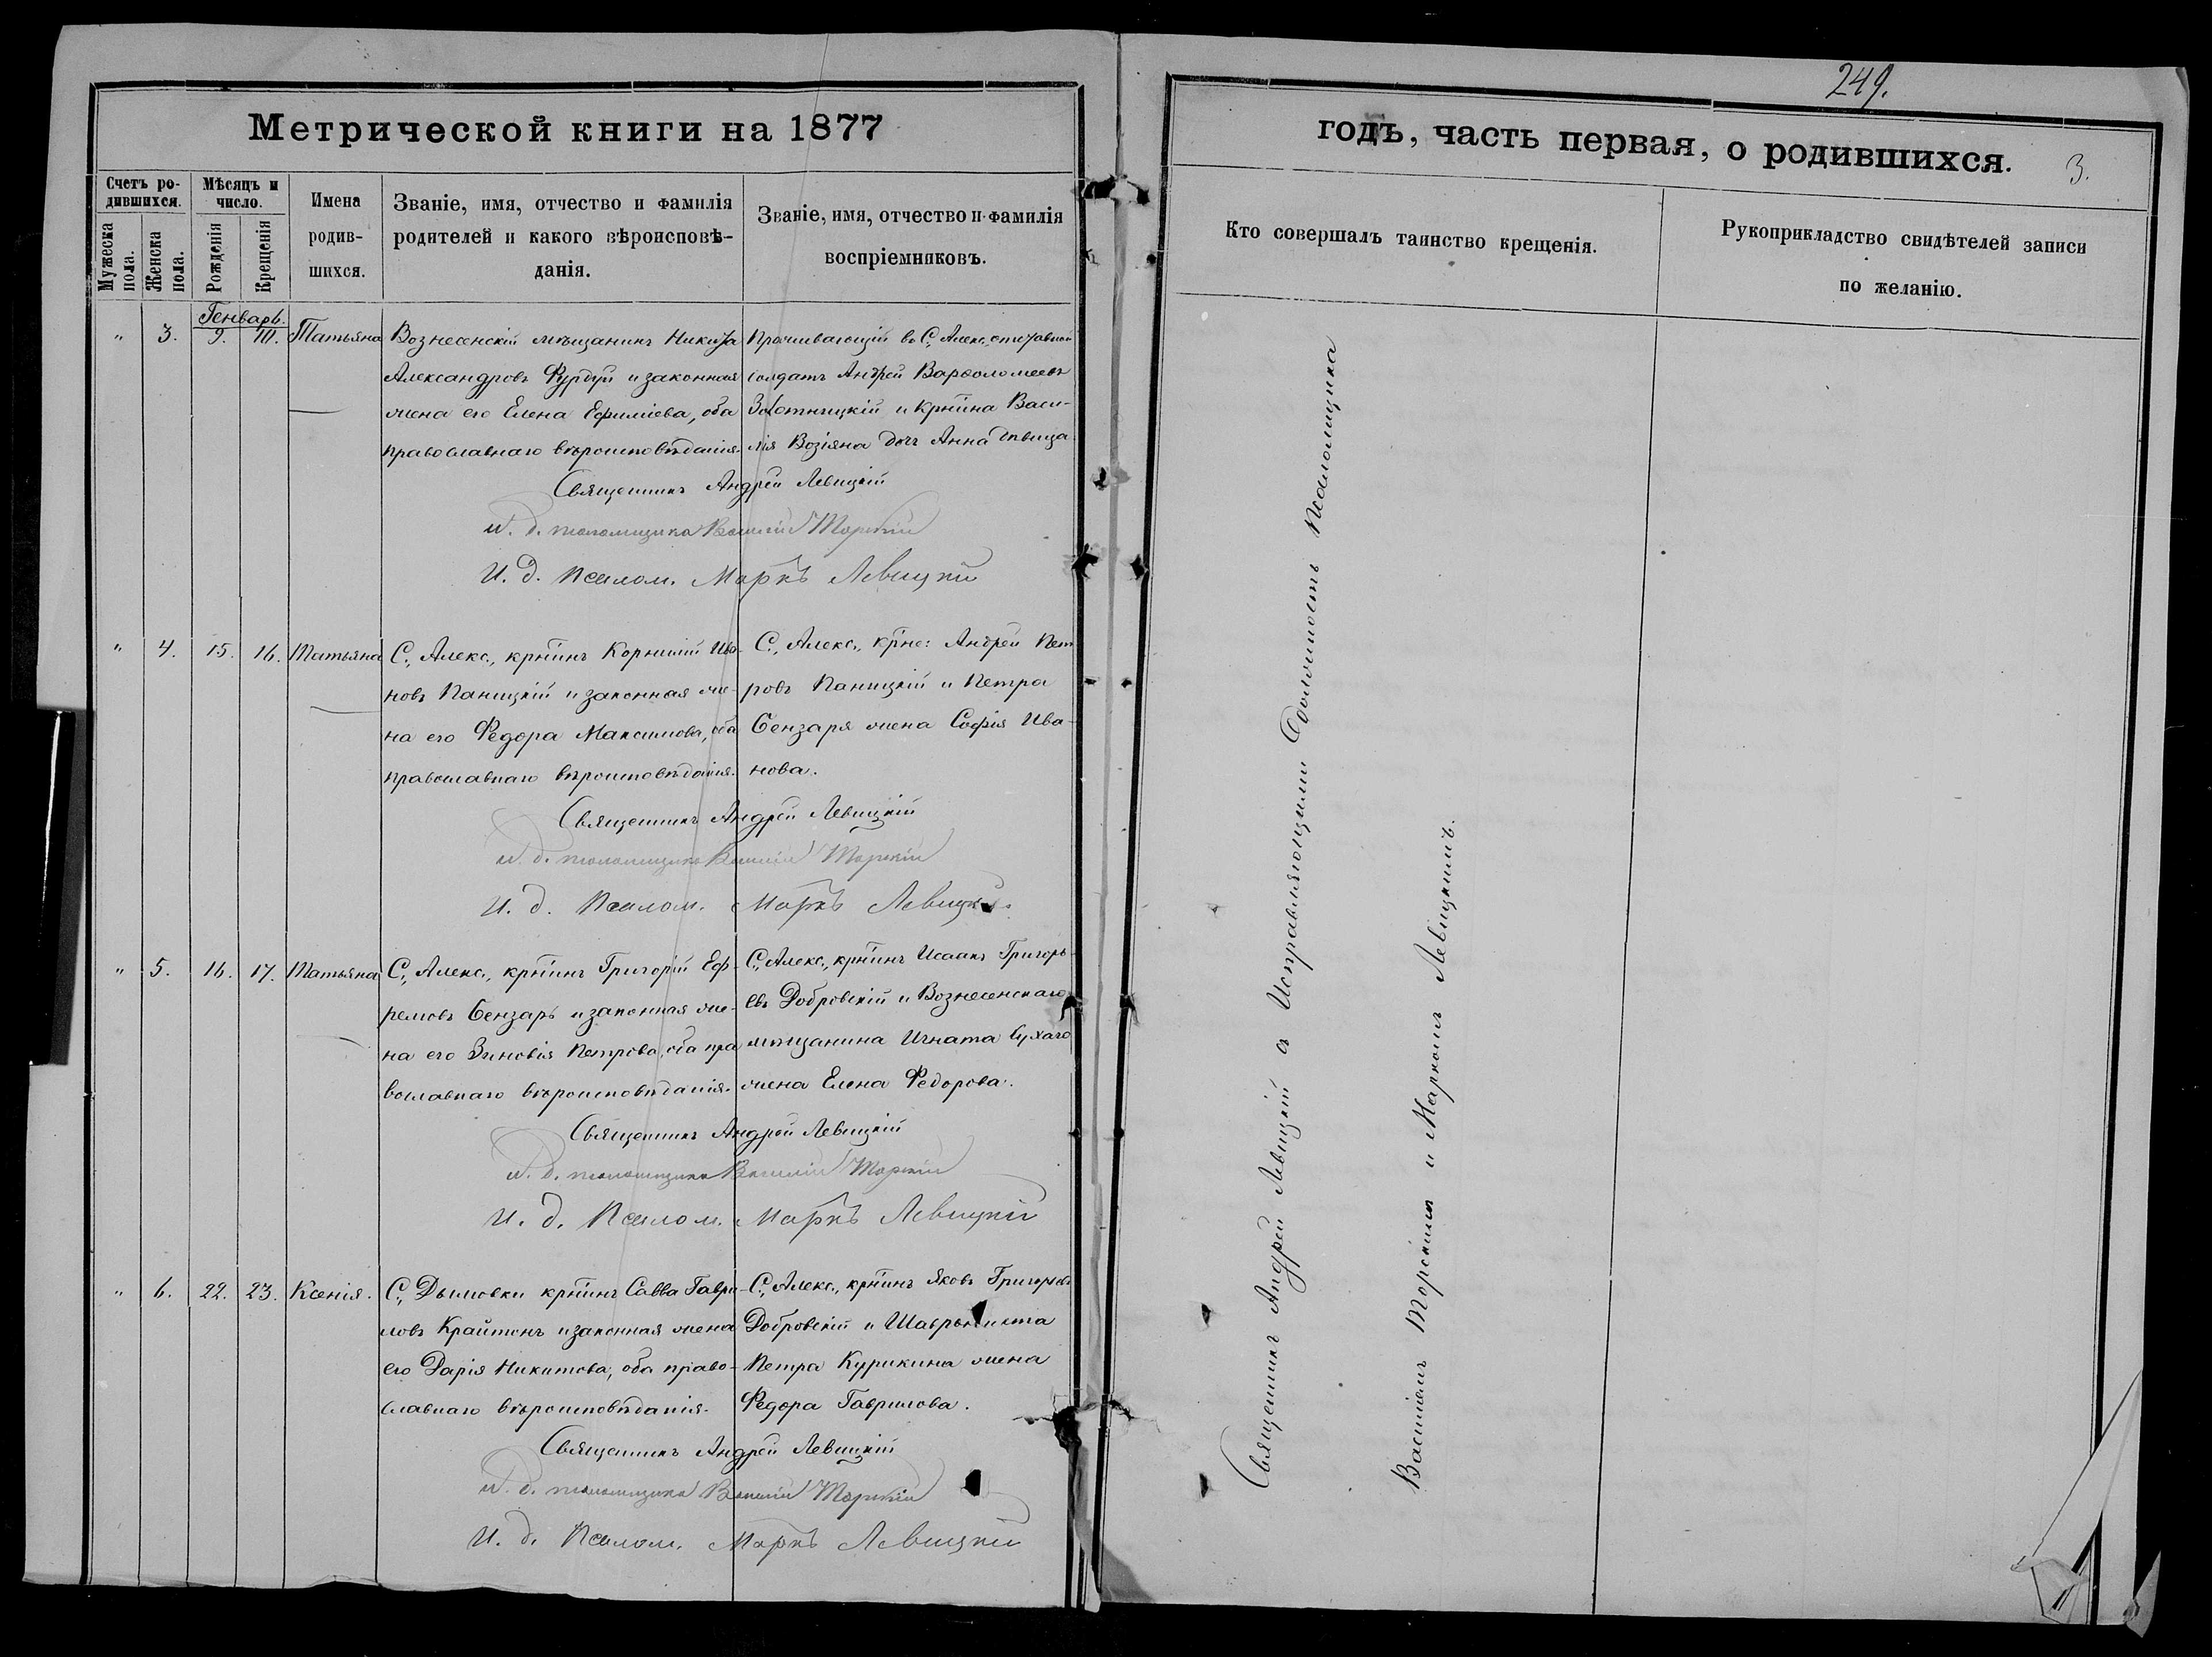 249.
Метрической книги на 1877
годъ, часть первая, о родившихся.
3.
Счетъ ро-
дившихся.
Мужеска
пола.
Женска
пола.
Мѣсяцъ и
число.
Рожденія
Крещенія
Имена
родив-
шихся.
Званіе, имя, отчество и фамилія
родителей и какого вѣроисповѣ-
данія.
Званіе, имя, отчество и фамилія
воспріемниковъ.
Кто совершалъ таинство крещенія.
Рукоприкладство свидѣтелей записи
по желанію.
Генварь.
" 3. 9. Татьяна
Вознесенскій мѣщанинъ Никита
Александровъ Фурдуй и законная
жена его Елена Ефиміева, оба
православнаго вѣроисповѣданія.
Проживающій въ С. Алекс. отставной
солдатъ Андрей Варѳоломеевъ
Золотницкій и крнина Васи-
лія Возіяна дочь Анна дѣвица
Священникъ Андрей Левицкій
И. д. псаломщика Василій Торскій
И. д. Псалом. Маркъ Левицкій
" 4. 15. 16. Татьяна
С., Алекс., крнинъ Корнилій Ива-
новъ Паницкій и законная же-
на его Федора Максимова, оба
православнаго вѣроисповѣданія.
С., Алекс., крне: Андрей Пет
ровъ Паницкій и Петра
Бензаря жена Софія Ива-
нова.
Священникъ Андрей Левицкій
И. д. псаломщика Василій Торскій
И. д. Псалом. Маркъ Левицкій
" 5. 16. 17. Татьяна
С., Алекс., крнинъ Григорій Еф-
ремовъ Бензарь и законная же-
на его Зиновія Петрова, оба пра
вославнаго вѣроисповѣданія.
С., Алекс., крнинъ Исаакъ Григорь-
евъ Добровскій и Вознесенскаго
мѣщанина Игната Сухаго
жена Елена Федорова.
Священникъ Андрей Левицкій
И. д. псаломщика Василій Торскій
И. д. Псалом. Маркъ Левицкій
" 6. 22. 23. Ксенія.
С., Дымовки крнинъ Савва Гаври-
ловъ Крайтонъ и законная жена
его Дарія Никитова, оба право-
славнаго вѣроисповѣданія.
С., Алекс., крнинъ Яковъ Григорьевъ
Добровскій и
Петра Курикина жена
Федора Гаврилова.
Священникъ Андрей Левицкій
И. д. псаломщика Василій Торскій
И. д. Псалом. Маркъ Левицкій
Священникъ Андрей Левицкій съ Исправляющими Должность Псаломщика
Василіемъ Торскимъ и Маркомъ Левицкимъ.